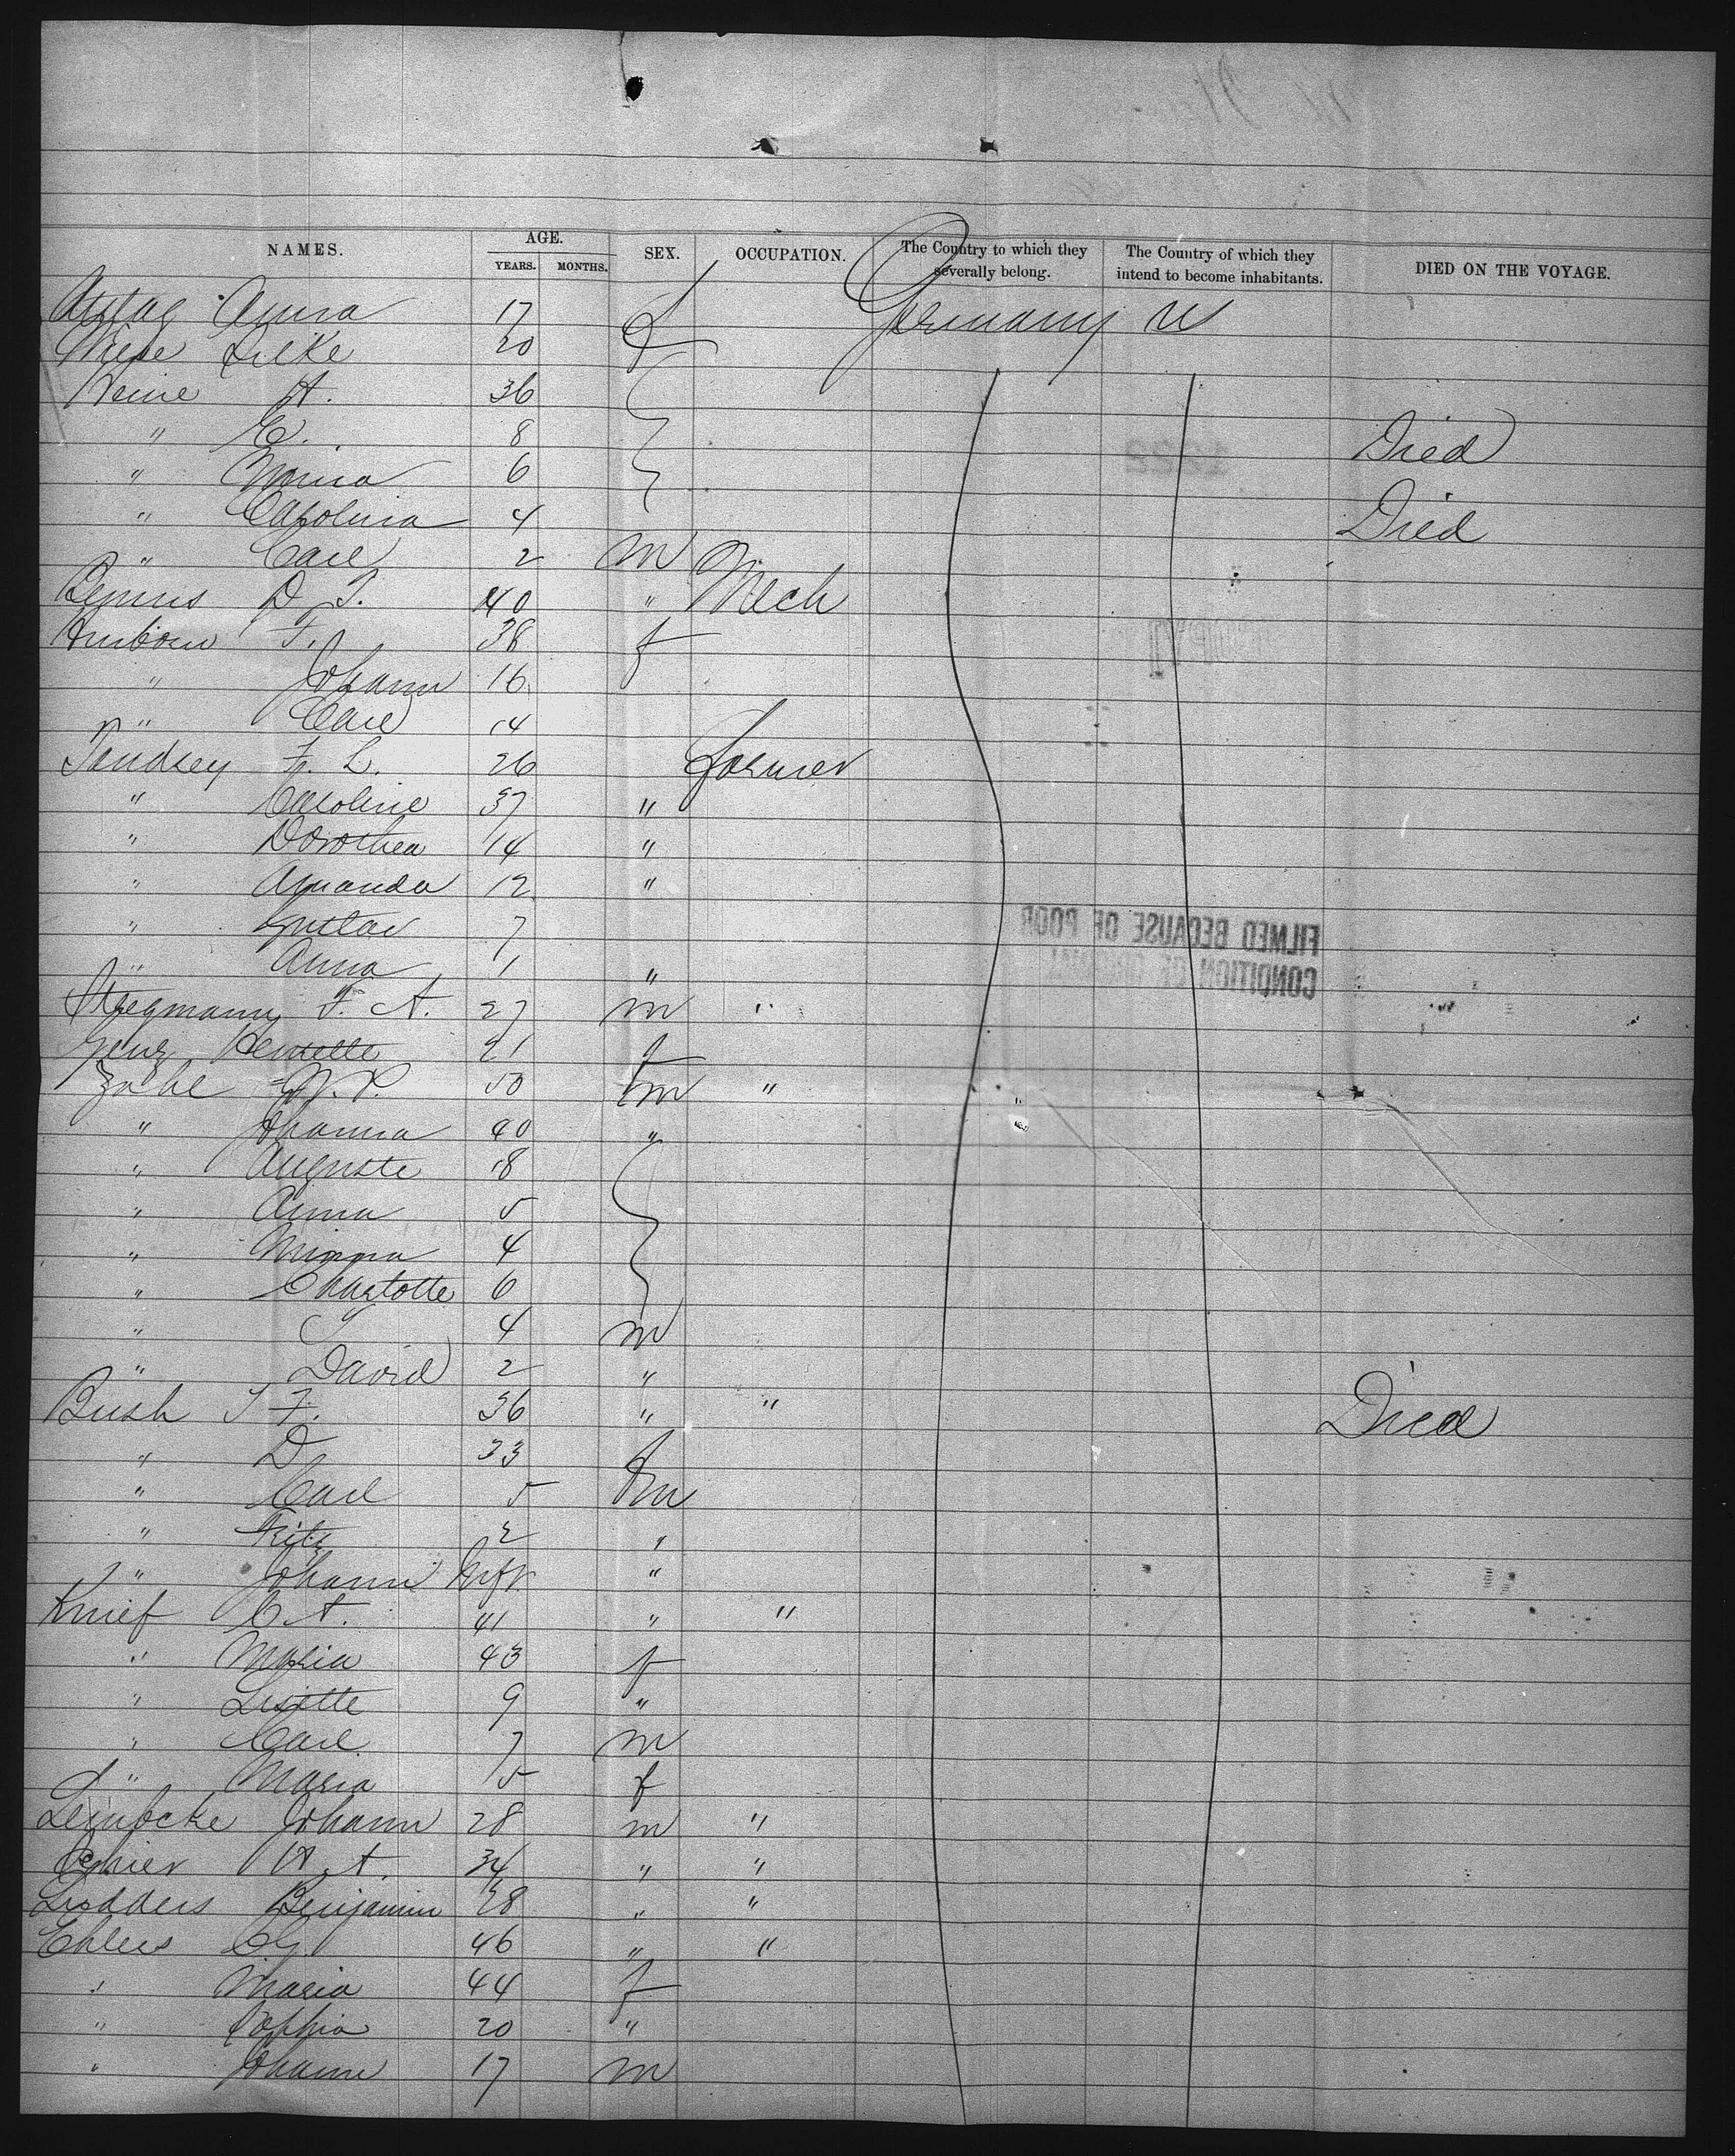 NAMES. AGE. YEARS. MONTHS. SEX. OCCUPATION. The Country to which they severally belong. The Country of which they intend to become inhabitants. DIED ON THE VOYAGE.
Anna 17 f Germany
Wiese Silke 20
Heine A. 36
" E. 8 Died
" Mina 6
" Carolina 4 Died
" Carl 2 m
D. J. 40 " Mech
F. 38 f
" Johann 16
" Carl 14
F. L. 26 Farmer
" Caroline 37 "
" Dorothea 14 "
" Amanda 12 "
" Gustav 7
" Anna 1 "
Stegmann F. A. 27 m "
Genz 21 f
Zabel P. 50 m "
" Johanna 40 "
" Auguste 18
" Anna 5
" Minna 4
" Charlotte 6
" 4 m
" David 2 "
Bush J F. 36 " " Died
" D 33 f
" Carl 5 m
" Fritz 2 "
" Johann Inft "
Knief C. A. 41 " "
" Maria 43 f
" Lisette 9 "
" Carl 7 m
" Maria 5 f
Lembcke Johann 28 m "
A. 34 " "
Lüdders Benjamin 28 " "
Ehlers C G 46 " "
" Maria 44 f
" Sophia 20 "
" Johann 17 m
FILMED BECAUSE OF POOR
CONDITION OF ORIGINAL